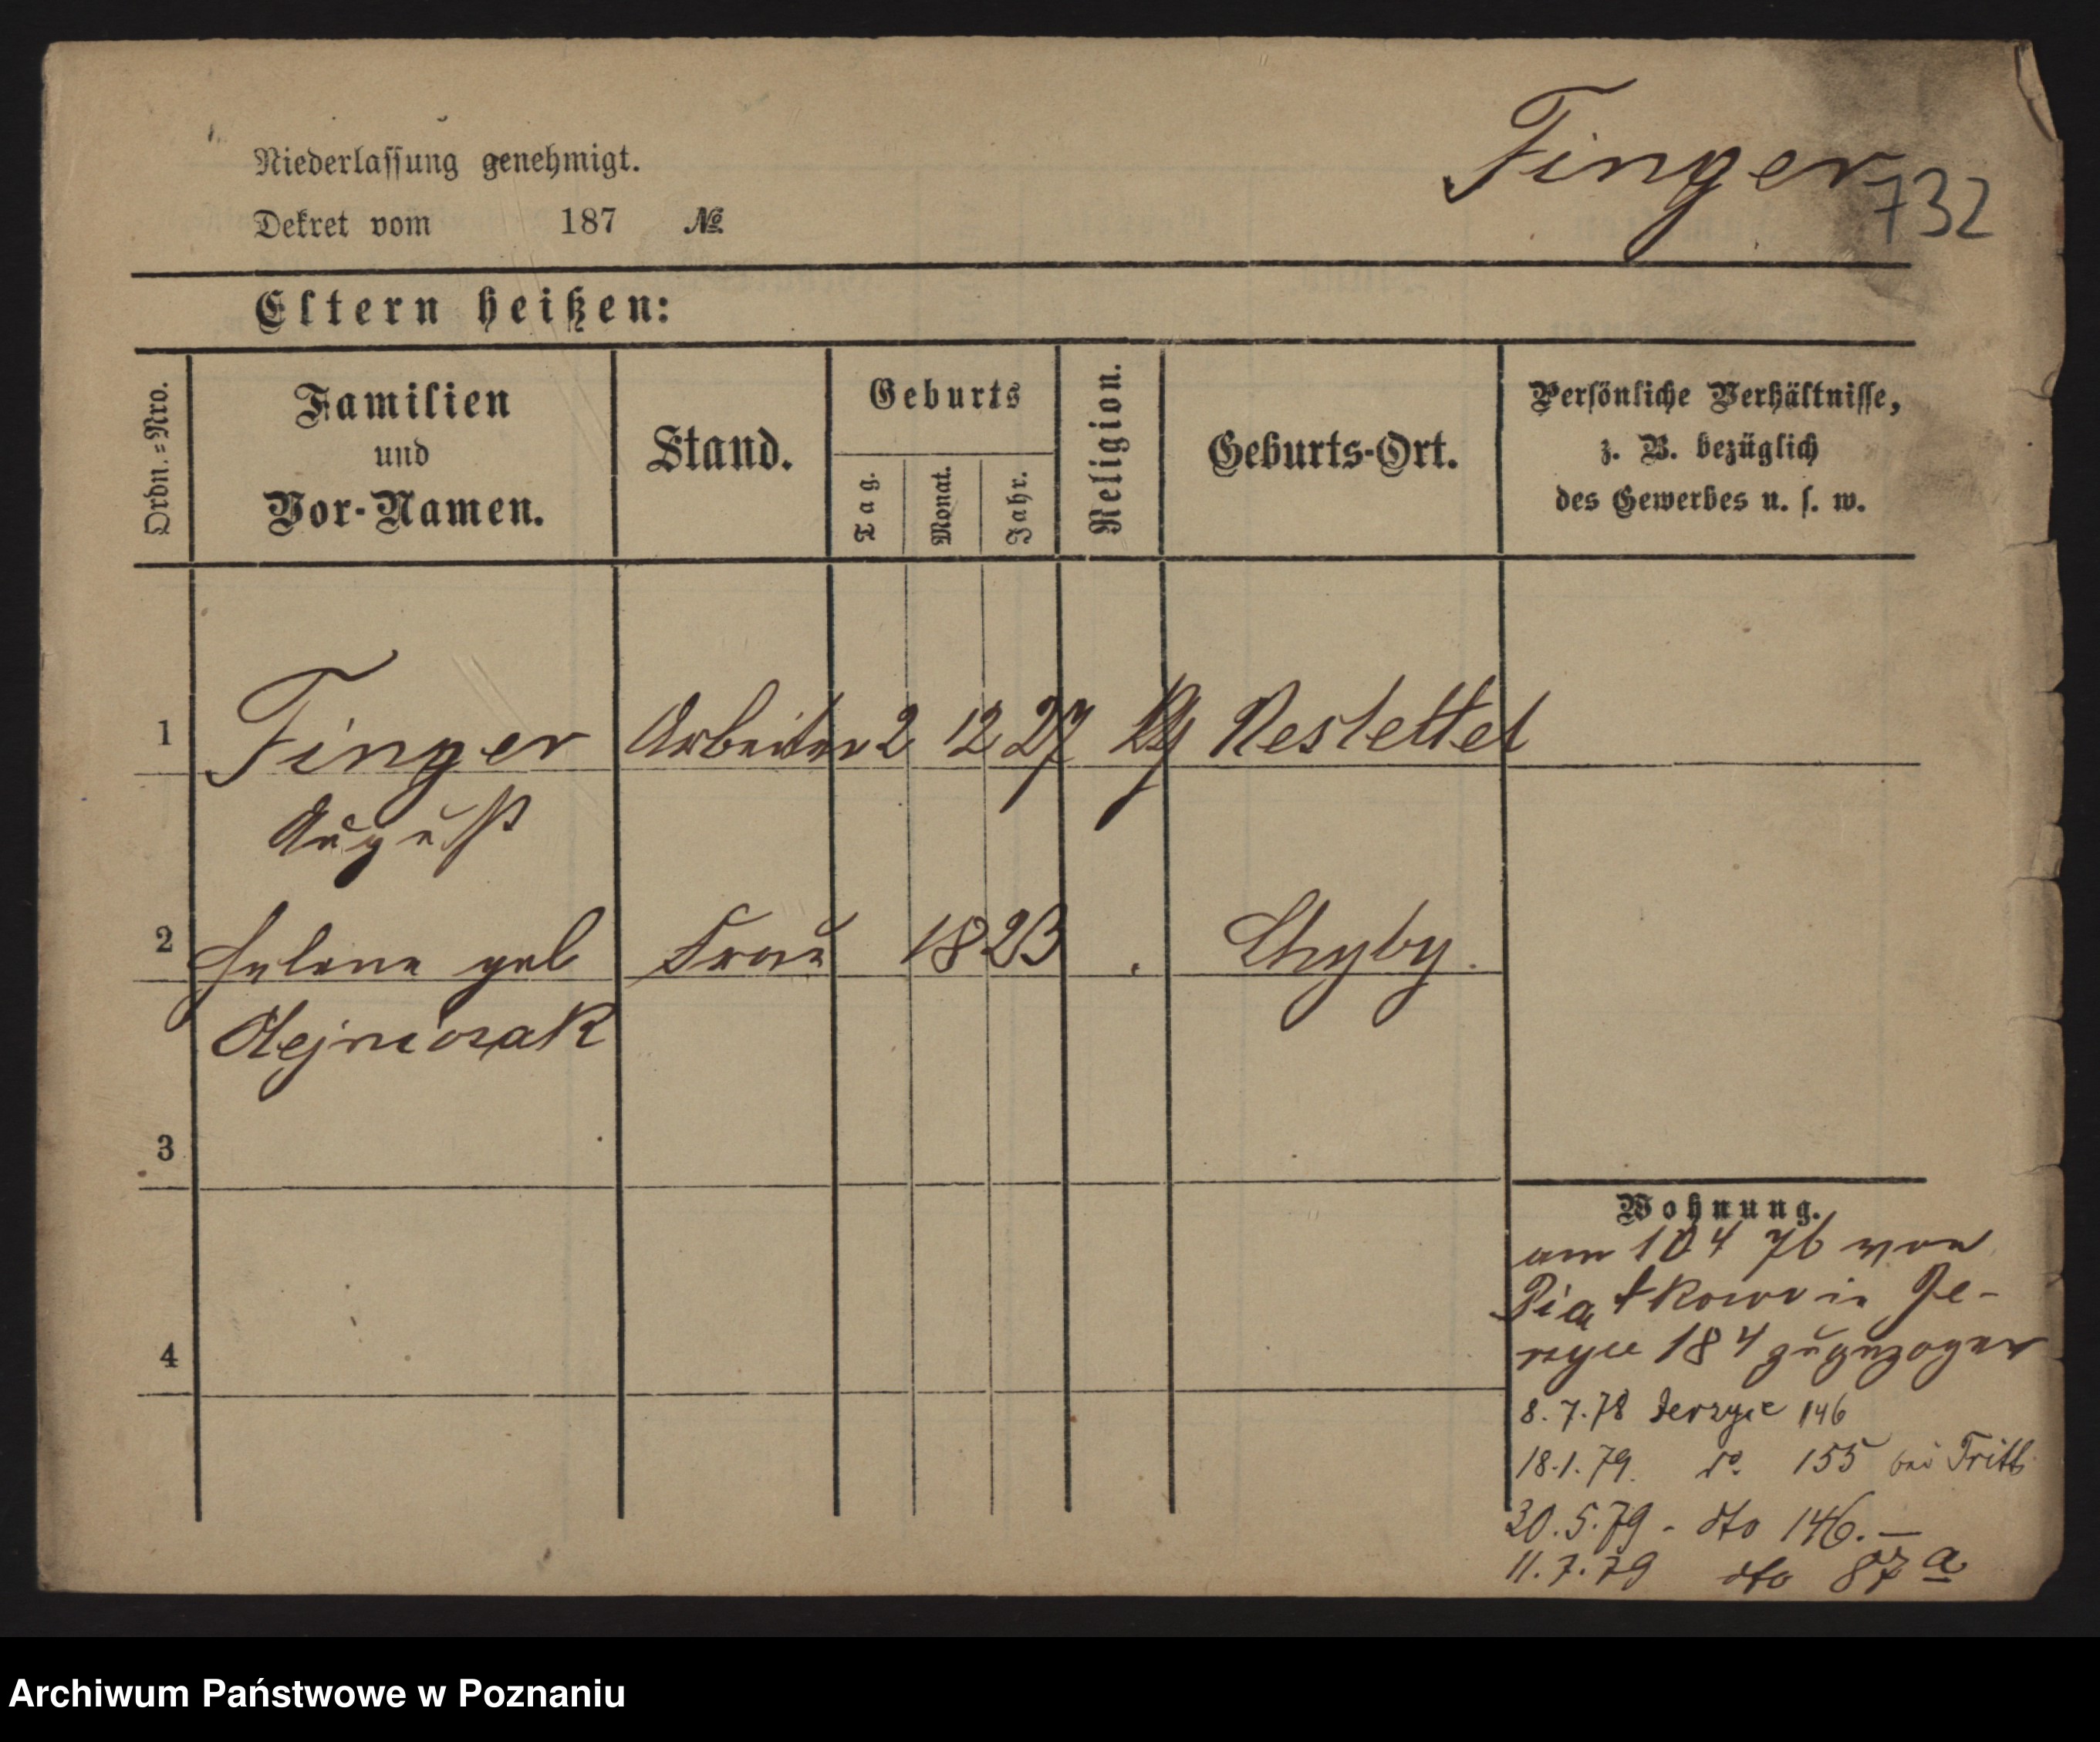 Niederlassung genehmigt.
Finger
732
Dekret vom 187 №
Eltern heißen:
Ordn.=Nro.
Familien
und
Vor-Namen.
Stand.
Geburts
Tag.
Monat.
Jahr.
Religion.
Geburts-Ort.
Persönliche Verhältnisse,
z. B. bezüglich
des Gewerbes u. s. w.
1 Finger Arbeiter 2 12 27
August
2 Helene geb Frau 1823 Chyby.
Olejniczak
3
4
Wohnung.
am 10 4 76 von
Piątkowo in Je-
rzyce 184 zugezogen
8. 7. 78 Jerzyce 146
18. 1. 79. do. 155 bei
30. 5. 79 - dto 146. —
11. 7. 79 dto 87 a
Archiwum Państwowe w Poznaniu